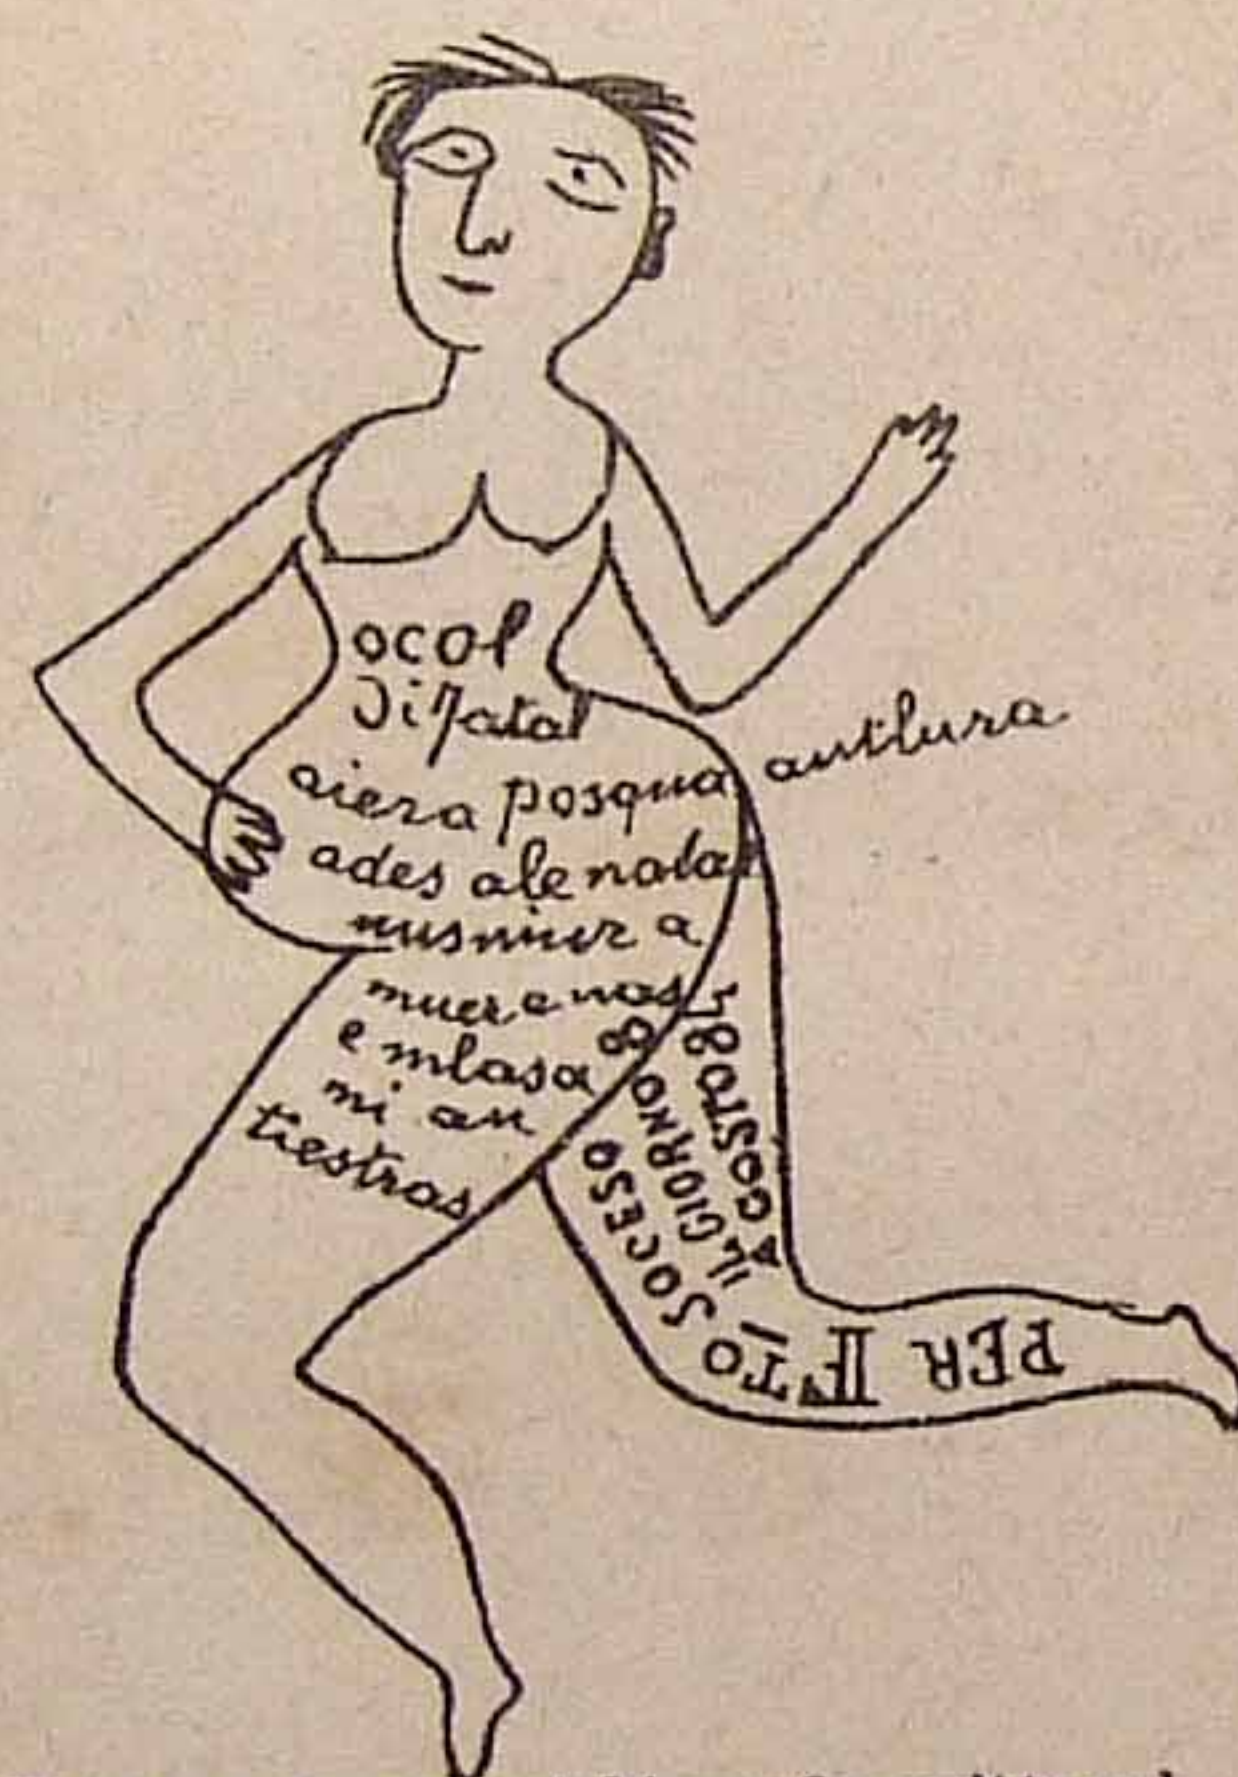 ocol
di Natal
aiera posqua antlura
ades ale natal
nusniur a
muer e nas
e mlasa
mi an
tiestras
PER IF TO SOCESO
IL GIORNO 8
AGOSTO 87